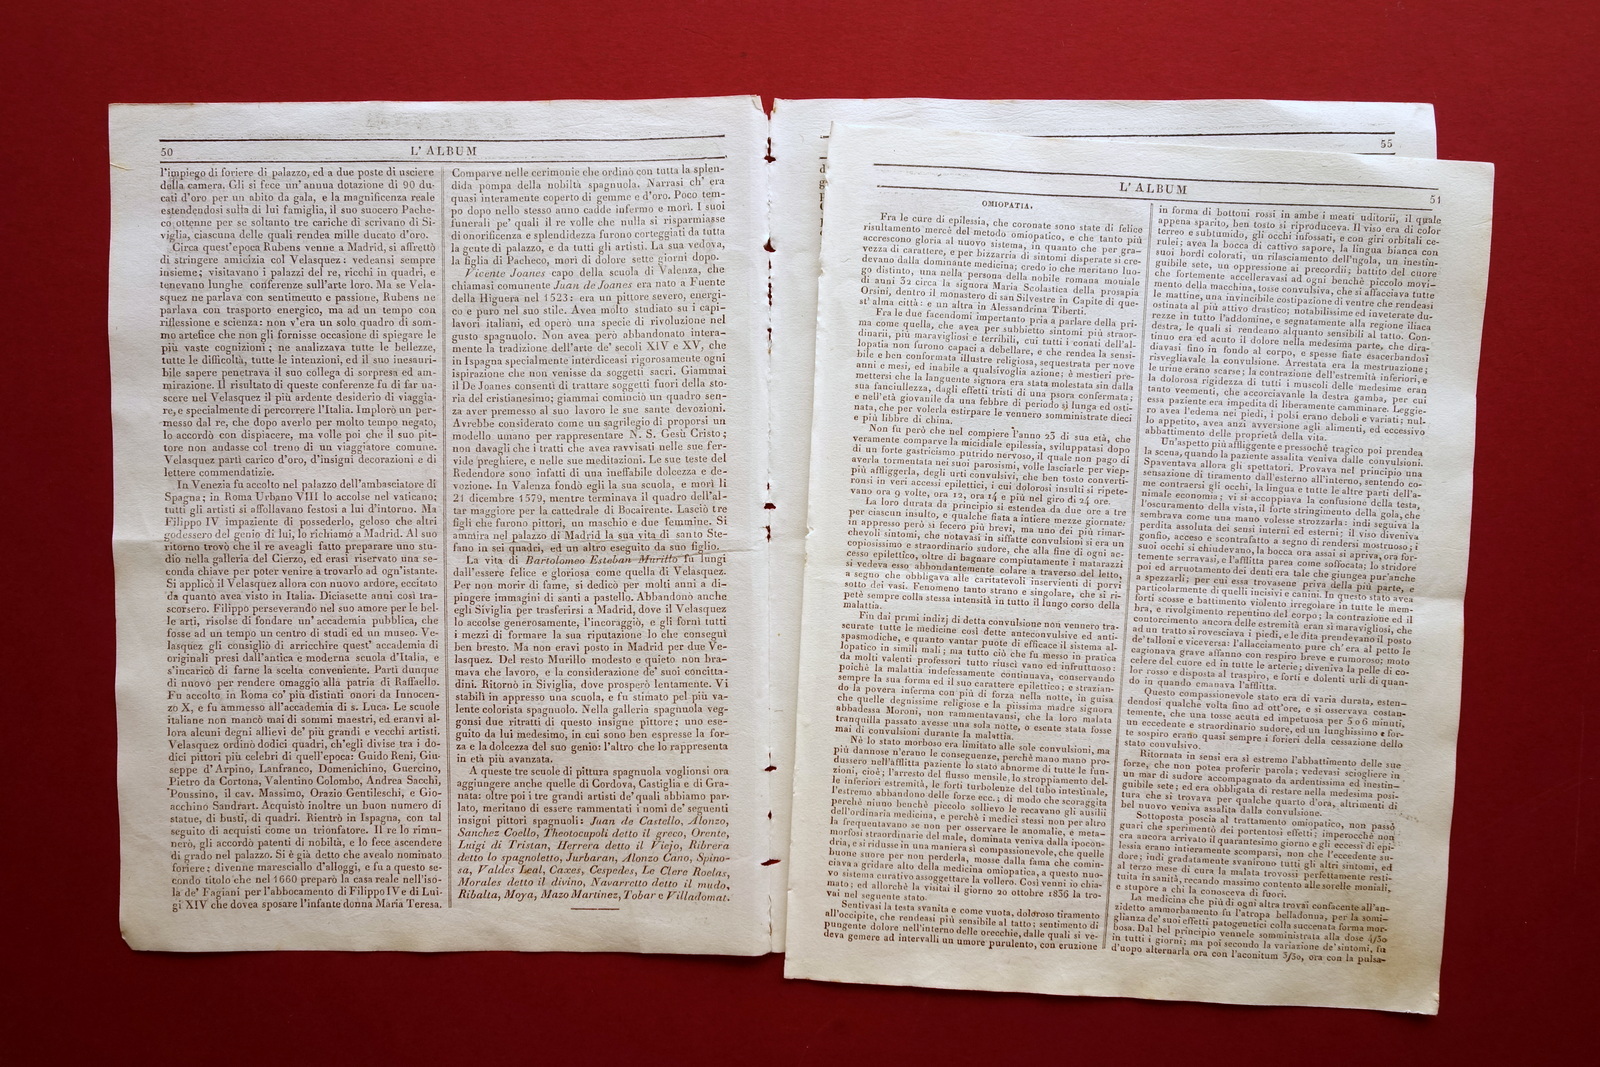 50
L' ALBUM
l'impiego di foriere di palazzo, ed a due poste di usciere
della camera. Gli si fece un' annua dotazione di 90 du-
cati d'oro per un abito da gala, e la magnificenza reale
estendendosi sulla di lui famiglia, il suo suocero Pache-
co ottenne per se soltanto tre cariche di scrivano di Si-
viglia, ciascuna delle quali rendea mille ducato d'oro.
Circa quest'epoca Rubens venne a Madrid, si affrettò
di stringere amicizia col Velasquez: vedeansi sempre
insieme; visitavano i palazzi del re, ricchi in quadri, e
tenevano lunghe conferenze sull'arte loro. Ma se Vela-
squez ne parlava con sentimento e passione, Rubens ne
parlava con trasporto energico, ma ad un tempo con
riflessione e scienza: non v'era un solo quadro di som-
mo artefice che non gli fornisse occasione di spiegare le
più vaste cognizioni; ne analizzava tutte le bellezze,
tutte le difficoltà, tutte le intenzioni, ed il suo inesauri-
bile sapere penetrava il suo collega di sorpresa ed am-
mirazione. Il risultato di queste conferenze fu di far na-
scere nel Velasquez il più ardente desiderio di viaggia-
re, e specialmente di percorrere l'Italia. Implorò un per-
messo dal re, che dopo averlo per molto tempo negato,
lo accordò con dispiacere, ma volle poi che il suo pit-
tore non andasse col treno di un viaggiatore comune.
Velasquez partì carico d'oro, d'insigni decorazioni e di
lettere commendatizie.
In Venezia fu accolto nel palazzo dell'ambasciatore di
Spagna; in Roma Urbano VIII lo accolse nel vaticano;
tutti gli artisti si affollavano festosi a lui d'intorno. Ma
Filippo IV impaziente di possederlo, geloso che altri
godessero del genio di lui, lo richiamò a Madrid. Al suo
ritorno trovò che il re aveagli fatto preparare uno stu-
dio nella galleria del Cierzo, ed erasi riservato una se-
conda chiave per poter venire a trovarlo ad ogn'istante.
Si applicò il Velasquez allora con nuovo ardore, eccitato
da quanto avea visto in Italia. Diciasette anni così tra-
scorsero. Filippo perseverando nel suo amore per le bel-
le arti, risolse di fondare un' accademia pubblica, che
fosse ad un tempo un centro di studi ed un museo. Ve-
lasquez gli consigliò di arricchire quest' accademia di
originali presi dall'antica e moderna scuola d'Italia, e
s'incaricò di farne la scelta conveniente. Partì dunque
di nuovo per rendere omaggio alla patria di Raffaello.
Fu accolto in Roma co' più distinti onori da Innocen-
zo X, e fu ammesso all'accademia di s. Luca. Le scuole
italiane non mancò mai di sommi maestri, ed eranvi al-
lora alcuni degni allievi de' più grandi e vecchi artisti.
Velasquez ordinò dodici quadri, ch'egli divise tra i do-
dici pittori più celebri di quell'epoca: Guido Reni, Giu-
seppe d'Arpino, Lanfranco, Domenichino, Guercino,
Pietro da Cortona, Valentino Colombo, Andrea Sacchi,
Poussino, il cav. Massimo, Orazio Gentileschi, e Gio-
acchino Sandrart. Acquistò inoltre un buon numero di
statue, di busti, di quadri. Rientrò in Ispagna, con tal
seguito di acquisti come un trionfatore. Il re lo rimu-
nerò, gli accordò patenti di nobiltà, e lo fece ascendere
di grado nel palazzo. Si è già detto che avealo nominato
foriere; divenne maresciallo d'alloggi, e fu a questo se-
condo titolo che nel 1660 preparò la casa reale nell'iso-
la de' Fagiani per l'abboccamento di Filippo IV e di Lui-
gi XIV che dovea sposare l'infante donna Maria Teresa.
Comparve nelle cerimonie che ordinò con tutta la splen-
dida pompa della nobiltà spagnuola. Narrasi ch' era
quasi interamente coperto di gemme e d'oro. Poco tem-
po dopo nello stesso anno cadde infermo e morì. I suoi
funerali pe' quali il re volle che nulla si risparmiasse
di onorificenza e splendidezza furono corteggiati da tutta
la gente di palazzo, e da tutti gli artisti. La sua vedova,
la figlia di Pacheco, morì di dolore sette giorni dopo.
Vicente Joanes capo della scuola di Valenza, che
chiamasi comunente Juan de Joanes era nato a Fuente
della Higuera nel 1523: era un pittore severo, energi-
co e puro nel suo stile. Avea molto studiato su i capi-
lavori italiani, ed operò una specie di rivoluzione nel
gusto spagnuolo. Non avea però abbandonato intera-
mente la tradizione dell'arte de' secoli XIV e XV, che
in Ispagna specialmente interdiceasi rigorosamente ogni
ispirazione che non venisse da soggetti sacri. Giammai
il De Joanes consentì di trattare soggetti fuori della sto-
ria del cristianesimo; giammai cominciò un quadro sen-
za aver premesso al suo lavoro le sue sante devozioni.
Avrebbe considerato come un sagrilegio di proporsi un
modello umano per rappresentare N. S. Gesù Cristo;
non davagli che i tratti che avea ravvisati nelle sue fer-
vide preghiere, e nelle sue meditazioni. Le sue teste del
Redendore sono infatti di una ineffabile dolcezza e de-
vozione. In Valenza fondò egli la sua scuola, e morì li
21 dicembre 1579, mentre terminava il quadro dell'al-
tar maggiore per la cattedrale di Bocairente. Lasciò tre
figli che furono pittori, un maschio e due femmine. Si
ammira nel palazzo di Madrid la sua vita di santo Ste-
fano in sei quadri, ed un altro eseguito da suo figlio.
La vita di Bartolomeo Esteban Murillo fu lungi
dall'essere felice e gloriosa come quella di Velasquez.
Per non morir di fame, si dedicò per molti anni a di-
pingere immagini di santi a pastello. Abbandonò anche
egli Siviglia per trasferirsi a Madrid, dove il Velasquez
lo accolse generosamente, l'incoraggiò, e gli fornì tutti
i mezzi di formare la sua riputazione lo che conseguì
ben bresto. Ma non eravi posto in Madrid per due Ve-
lasquez. Del resto Murillo modesto e quieto non bra-
mava che lavoro, e la considerazione de' suoi concitta-
dini. Ritornò in Siviglia, dove prosperò lentamente. Vi
stabilì in appresso una scuola, e fu stimato pel più va-
lente colorista spagnuolo. Nella galleria spagnuola veg-
gonsi due ritratti di questo insigne pittore; uno ese-
guito da lui medesimo, in cui sono ben espresse la for-
za e la dolcezza del suo genio: l'altro che lo rappresenta
in età più avanzata.
A queste tre scuole di pittura spagnuola voglionsi ora
aggiungere anche quelle di Cordova, Castiglia e di Gra-
nata: oltre poi i tre grandi artisti de' quali abbiamo par-
lato, meritano di essere rammentati i nomi de' seguenti
insigni pittori spagnuoli: Juan de Castello, Alonzo,
Sanchez Coello, Theotocupoli detto il greco, Orente,
Luigi di Tristan, Herrera detto il Viejo, Ribrera
detto lo spagnoletto, Jurbaran, Alonzo Cano, Spino-
sa, Valdes Leal, Caxes, Cespedes, Le Clere Roelas,
Morales detto il divino, Navarretto detto il mudo,
Ribalta, Moya, Mazo Martinez, Tobar e Villadomat.
55
L' ALBUM
51
OMIOPATIA.
Fra le cure di epilessia, che coronate sono state di felice
risultamento mercè del metodo omiopatico, e che tanto più
accrescono gloria al nuovo sistema, in quanto che per gra-
vezza di carattere, e per bizzarria di sintomi disperate si cre-
devano dalla dominante medicina; credo io che meritano luo-
go distinto, una nella persona della nobile romana moniale
di anni 32 circa la signora Maria Scolastica della prosapia
Orsini, dentro il monastero di san Silvestre in Capite di que-
st' alma città: e un altra in Alessandrina Tiberti.
Fra le due facendomi importanto pria a parlare della pri-
ma come quella, che avea per subbietto sintomi più straor-
dinarii, più maravigliosi e terribili, cui tutti i conati dell'al-
lopatia non furono capaci a debellare, e che rendea la sensi-
bile e ben conformata illustre religiosa, sequestrata per nove
anni e mesi, ed inabile a qualsivoglia azione; è mestieri pre-
mettersi che la languente signora era stata molestata sin dalla
sua fanciullezza, dagli effetti tristi di una psora confermata;
e nell'età giovanile da una febbre di periodo sì lunga ed osti-
nata, che per volerla estirpare le vennero somministrate dieci
e più libbre di china.
Non fu però che nel compiere l'anno 23 di sua età, che
veramente comparve la micidiale epilessia, sviluppatasi dopo
di un forte gastricismo putrido nervoso, il quale non pago di
averla tormentata nei suoi parosismi, volle lasciarle per viep-
più affliggerla, degli urti convulsivi, che ben tosto converti-
ronsi in veri accessi epilettici, i cui dolorosi insulti si ripete-
vano ora 9 volte, ora 12, ora 14 e più nel giro di 24 ore.
La loro durata da principio si estendea da due ore a tre
per ciascun insulto, e qualche fiata a intiere mezze giornate:
in appresso però si fecero più brevi, ma uno dei più rimar-
chevoli sintomi, che notavasi in siffatte convulsioni si era un
copiosissimo e straordinario sudore, che alla fine di ogni ac-
cesso epilettico, oltre di bagnare compiutamente i matarazzi
si vedeva esso abbondantemente colare a traverso del letto,
a segno che obbligava alle caritatevoli inservienti di porvi
sotto dei vasi. Fenomeno tanto strano e singolare, che si ri-
petè sempre colla stessa intensità in tutto il lungo corso della
malattia.
Fin dai primi indizj di detta convulsione non vennero tra-
scurate tutte le medicine così dette anteconvulsive ed anti-
spasmodiche, e quanto vantar puote di efficace il sistema al-
lopatico in simili mali; ma tutto ciò che fu messo in pratica
da molti valenti professori tutto riuscì vano ed infruttuoso:
poichè la malattia indefessamente continuava, conservando
sempre la sua forma ed il suo carattere epilettico; e strazian-
do la povera inferma con più di forza nella notte, in guisa
che quelle degnissime religiose e la piissima madre signora
abbadessa Moroni, non rammentavansi, che la loro malata
tranquilla passato avesse una sola notte, o esente stata fosse
mai di convulsioni durante la malattia.
Nè lo stato morboso era limitato alle sole convulsioni, ma
più dannose n'erano le conseguenze, perchè mano mano pro-
dussero nell'afflitta paziente lo stato abnorme di tutte le fun-
zioni, cioè; l'arresto del flusso mensile, lo stroppiamento del-
le inferiori estremità, le forti turbolenze del tubo intestinale,
l'estremo abbandono delle forze ecc.; di modo che scoraggita
perchè niuno benchè piccolo sollievo le recavano gli ausilii
dell'ordinaria medicina, e perchè i medici stessi non per altro
la frequentavano se non per osservare le anomalie, e meta-
morfosi straordinarie del male, dominata veniva dalla ipocon-
dria, e si ridusse in una maniera sì compassionevole, che quelle
buone suore per non perderla, mosse dalla fama che comin-
ciava a gridare alto della medicina omiopatica, a questo nuo-
vo sistema curativo assoggettare la vollero. Così venni io chia-
mato; ed allorchè la visitai il giorno 20 ottobre 1836 la tro-
vai nel seguente stato.
Sentivasi la testa svanita e come vuota, doloroso tiramento
all'occipite, che rendeasi più sensibile al tatto; sentimento di
pungente dolore nell'interno delle orecchie, dalle quali si ve-
deva gemere ad intervalli un umore purulento, con eruzione
in forma di bottoni rossi in ambe i meati uditorii, il quale
appena sparito, ben tosto si riproduceva. Il viso era di color
terreo e subtumido, gli occhi infossati, e con giri orbitali ce-
rulei; avea la bocca di cattivo sapore, la lingua bianca con
suoi bordi colorati, un rilasciamento dell'ugola, un inestin-
guibile sete, un oppressione ai precordii; battito del cuore
che fortemente accelleravasi ad ogni benchè piccolo movi-
mento della macchina, tosse convulsiva, che si affacciava tutte
le mattine, una invincibile costipazione di ventre che rendeasi
ostinata al più attivo drastico; notabilissime ed inveterate du-
rezze in tutto l'addomine, e segnatamente alla regione iliaca
destra, le quali si rendeano alquanto sensibili al tatto. Con-
tinuo era ed acuto il dolore nella medesima parte, che dira-
diavasi fino in fondo al corpo, e spesse fiate esacerbandosi
risvegliavale la convulsione. Arrestata era la mestruazione;
le urine erano scarse; la contrazione dell'estremità inferiori, e
la dolorosa rigidezza di tutti i muscoli delle medesime eran
tanto veementi, che accorciavanle la destra gamba, per cui
essa paziente era impedita di liberamente camminare. Leggie-
ro avea l'edema nei piedi, i polsi erano deboli e variati; nul-
lo appetito, avea anzi avversione agli alimenti, ed eccessivo
abbattimento delle proprietà della vita.
Un'aspetto più affliggente e pressochè tragico poi prendea
la scena, quando la paziente assalita veniva dalle convulsioni.
Spaventava allora gli spettatori. Provava nel principio una
sensazione di tiramento dall'esterno all'interno, sentendo co-
me contraersi gli occhi, la lingua e tutte le altre parti dell'a-
nimale economia; vi si accoppiava la confusione della testa,
l'oscuramento della vista, il forte stringimento della gola, che
sembrava come una mano volesse strozzarla: indi seguiva la
perdita assoluta dei sensi interni ed esterni; il viso diveniva
gonfio, acceso e scontrafatto a segno di rendersi mostruoso; i
suoi occhi si chiudevano, la bocca ora assai si apriva, ora for-
temente serravasi, e l'afflitta parea come soffocata; lo stridore
poi ed arruotamento dei denti era tale che giungea pur'anche
a spezzarli; per cui essa trovasene priva della più parte, e
particolarmente di quelli incisivi e canini. In questo stato avea
forti scosse e battimento violento irregolare in tutte le mem-
bra, e rivolgimento repentino del corpo; la contrazione ed il
contorcimento ancora delle estremità eran sì maravigliosi, che
ad un tratto si rovesciava i piedi, e le dita prendevano il posto
de' talloni e viceversa: l'allacciamento pure ch'era al petto le
cagionava grave affanno con respiro breve e rumoroso; moto
celere del cuore ed in tutte le arterie; diveniva la pelle di co-
lor rosso e disposta al traspiro, e forti e dolenti urli di quan-
do in quando emanava l'afflitta.
Questo compassionevole stato era di varia durata, esten-
dendosi qualche volta fino ad ott'ore, e si osservava costan-
temente, che una tosse acuta ed impetuosa per 5 o 6 minuti,
un eccedente e straordinario sudore, ed un lunghissimo e for-
te sospiro erano quasi sempre i forieri della cessazione dello
stato convulsivo.
Ritornata in sensi era sì estremo l'abbattimento delle sue
forze, che non potea proferir parola; vedevasi sciogliere in
un mar di sudore accompagnato da ardentissima ed inestin-
guibile sete; ed era obbligata di restare nella medesima posi-
tura che si trovava per qualche quarto d'ora, altrimenti di
bel nuovo veniva assalita dalla convulsione.
Sottoposta poscia al trattamento omiopatico, non passò
guari che sperimentò dei portentosi effetti; imperocchè non
era ancora arrivato il quarantesimo giorno e gli eccessi di epi-
lessia erano intieramente scomparsi, non che l'eccedente su-
dore; indi gradatamente svanirono tutti gli altri sintomi, ed
al terzo mese di cura la malata trovossi perfettamente resti-
tuita in sanità, recando massimo contento alle sorelle moniali,
e stupore a chi la conosceva di fuori.
La medicina che più di ogni altra trovai confacente all'an-
zidetto ammorbamento fu l'atropa belladonna, per la somi-
glianza de' suoi effetti patogenetici colla succenata forma mor-
bosa. Dal bel principio vennele somministrata alla dose 4/30
in tutti i giorni; ma poi secondo la variazione de' sintomi, fu
d'uopo alternarla ora con l'aconitum 3/30, ora con la pulsa-